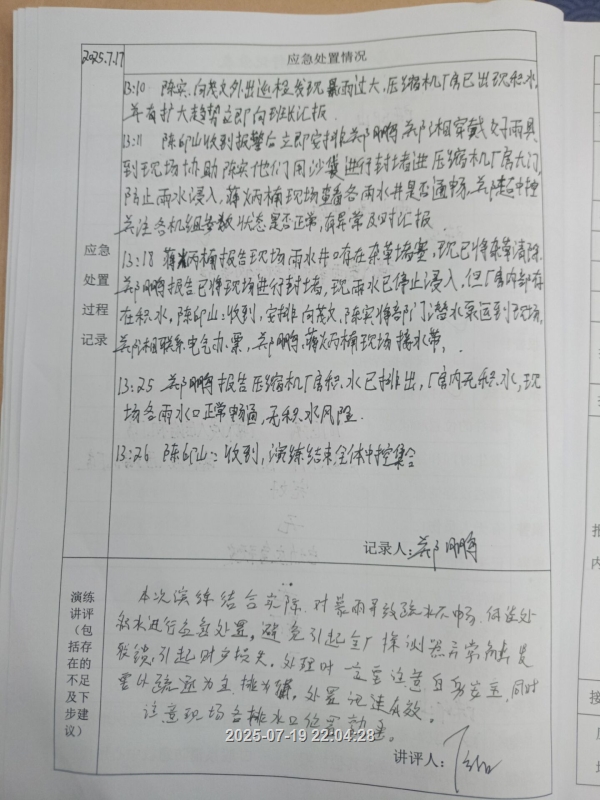 2025.7.17
应急处置情况
应急
处置
过程
记录
13:10 陈实、向茂文外出巡检发现暴雨过大,压缩机厂房已出现积水,
并有扩大趋势立即向班长汇报.
13:11 陈邱山收到报警后立即安排郑鹏、相穿戴好雨具
到现场协助陈实他们用沙袋进行封堵进压缩机厂房大门
防止雨水浸入,蒋炳楠现场查看各雨水井是否通畅,中控
关注各机组参数状态是否正常,有异常及时汇报.
13:18 蒋炳楠报告现场雨水井口存在杂草堵塞,现已将杂草清除.
鹏报告已将现场进行封堵,现雨水已停止浸入,但厂房内部存
在积水,陈邱山:收到,安排向茂文、陈实将部门潜水泵运到现场,
相联系电气办票,鹏、蒋炳楠现场接水带.
13:25 鹏报告压缩机厂房积水已排出,厂房内无积水,现
场各雨水口正常畅通,无积水风险.
13:26 陈邱山:收到,演练结束全体中控集合
记录人: 鹏
演练
讲评
(包
括存
在的
不足
及下
步建
议)
本次演练结合实际,对暴雨导致疏水不畅,
积水进行应急处置,避免引起全厂探测器异常
联锁,引起财产损失。处理时一定要注意自身安全,同时
要以疏通为主,排为辅,处置迅速有效。
注意现场各排水口位置
讲评人:
2025-07-19 22:04:28